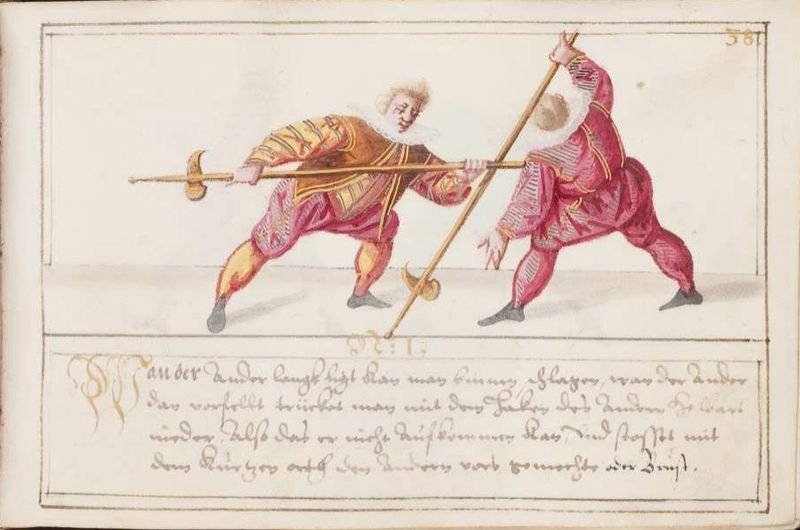 38
N: 1:
Wan der Ander langk ligt kan man binnen schlagen, wan der Ander
dan vorfellt trücket man mit dem haken des Andern
nieder, Also das er nicht Aufkommen kan, und stosset mit
dem kurtzen orth den Andern vors gemechte oder Brust.